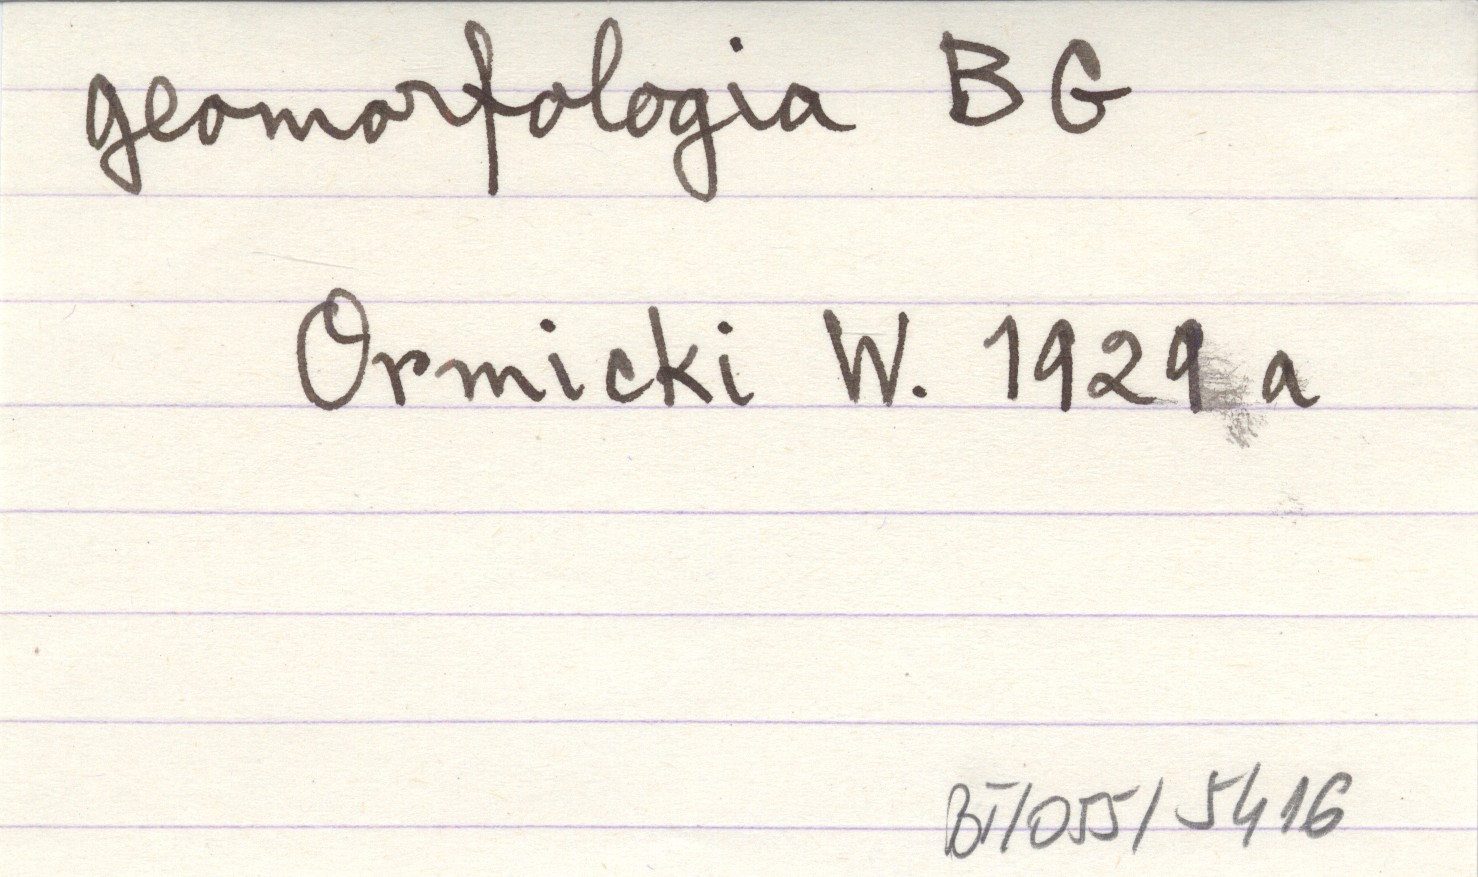 geomorfologia BG
Ormicki W. 1929 a
BI/055/5416